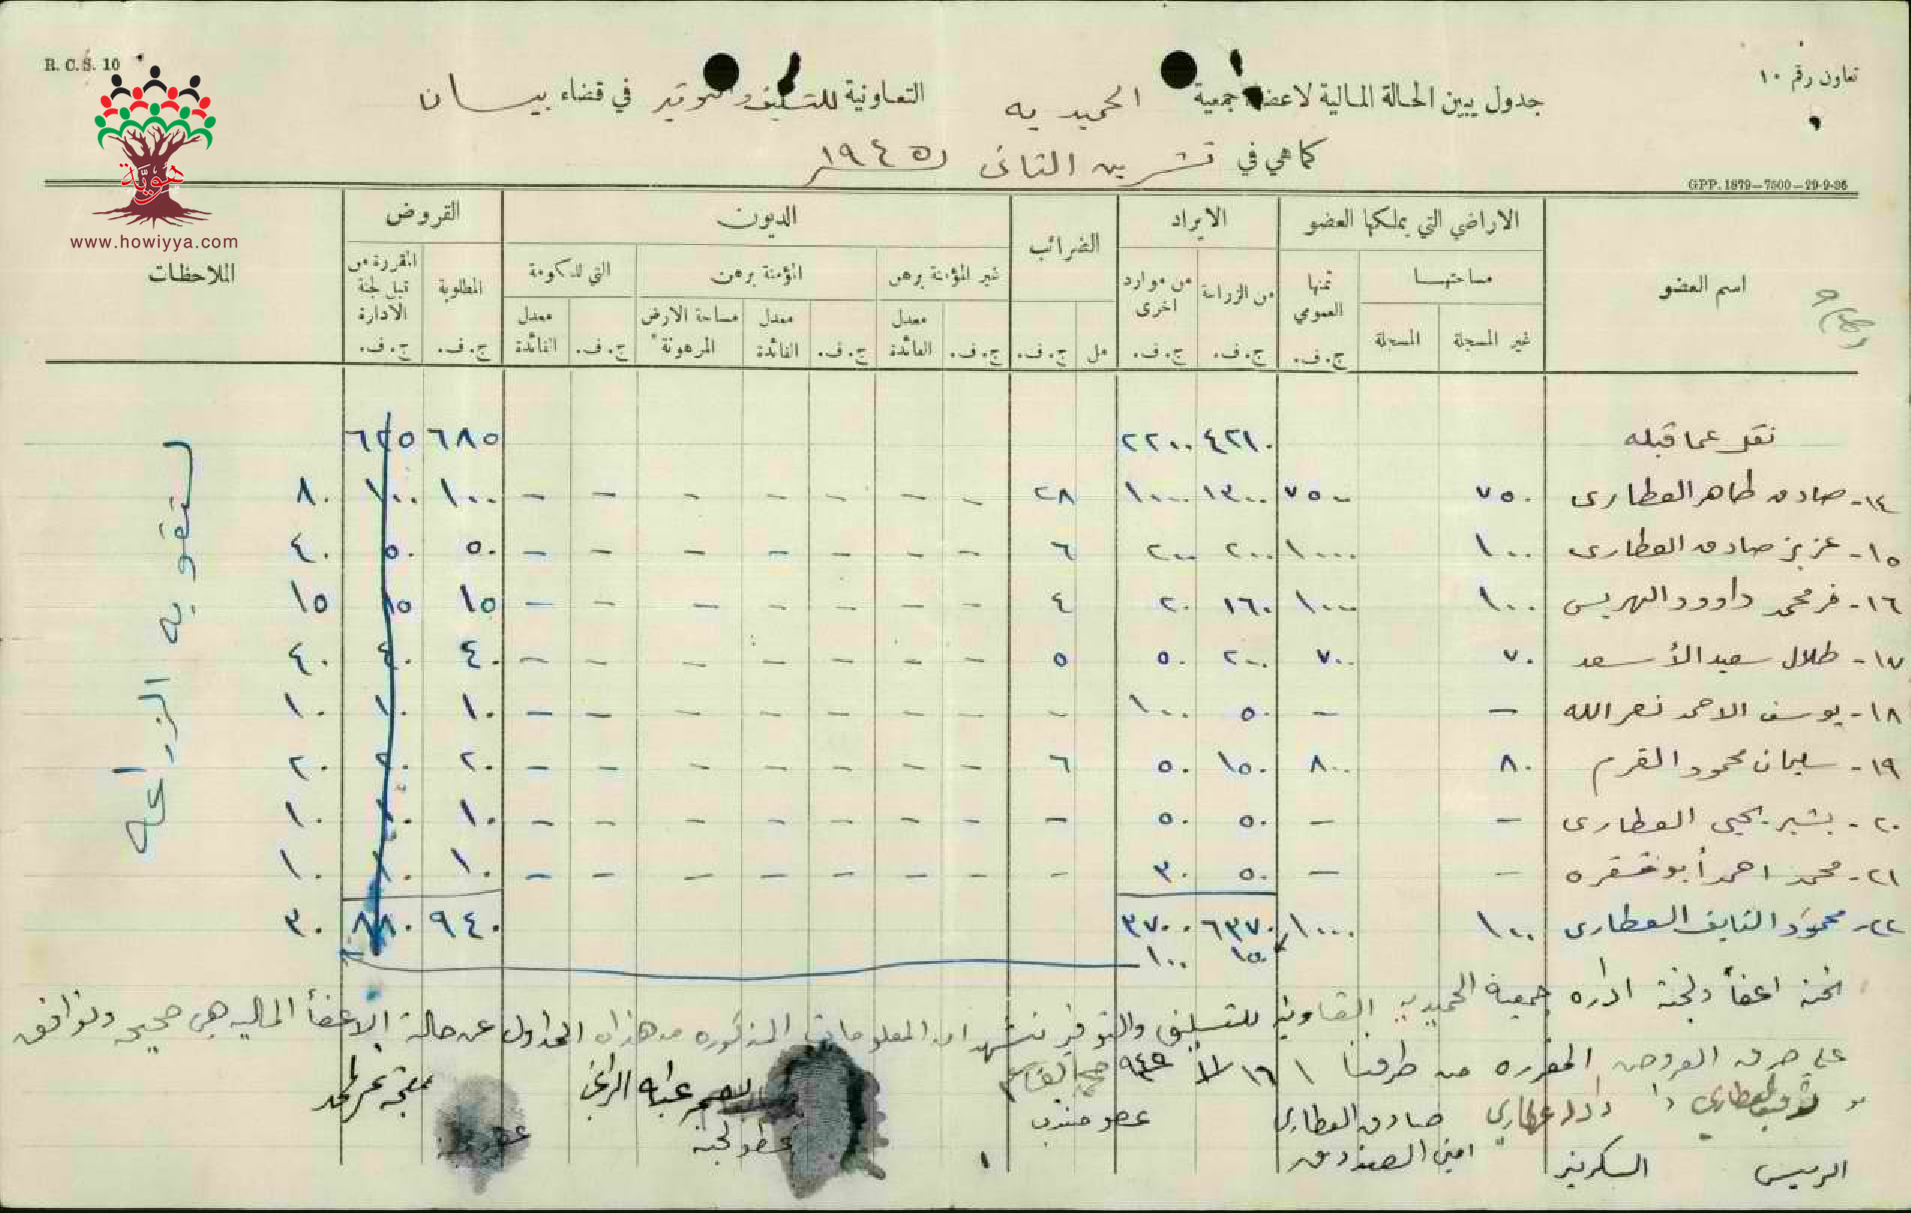 R. C. S. 10
تعاون رقم ١٠
جدول يبين الحالة المالية لاعضاء جمعية الحميديه التعاونية للتسليف والتوفير في قضاء بيسان
كما هي في تشرين الثاني ١٩٤٥
GPP. 1879—7500—29-9-36
هوية
www.howiyya.com
اسم العضو الاراضي التي يملكها العضو الايراد الضرائب الديون القروض الملاحظات
مساحتهـا ثمنها العمومي من الزراعة من موارد اخرى غير المؤمنة برهن المؤمنة برهن التي للحكومة المطلوبة المقررة من قبل لجنة الادارة
غير المسجلة المسجلة ج.ف. ج.ف. ج.ف. مل ج.ف. ج.ف. معدل الفائدة ج.ف. معدل الفائدة مساحة الارض المرهونة ج.ف. معدل الفائدة ج.ف. ج.ف.
نقل عما قبله ٤٢١٠ ٢٢٠٠ ٦٨٥ ٦٢٥
١٤- صادق طاهر العطارى ٧٥٠ ٧٥٠٠ ١٣٠٠ ١٠٠٠ ٢٨ - - - - - - - ١٠٠ ١٠٠ ٨٠
١٥- عزيز صادق العطارى ١٠٠ ١٠٠٠ ٢٠٠ ٢٠٠ ٦ - - - - - - - ٥٠ ٥٠ ٤٠
١٦- محمد داوود ١٠٠ ١٠٠٠ ١٦٠ ٢٠ ٤ - - - - - - - ١٥ ١٥ ١٥
١٧- طلال سعيد الأسعد ٧٠ ٧٠٠ ٢٠٠ ٥٠ ٥ - - - - - - - ٤٠ ٤٠ ٤٠
١٨- يوسف الاحمد نصرالله - - ٥٠ ١٠٠ - - - - - - - - ١٠ ١٠ ١٠
١٩- سليمان محمود القرم ٨٠ ٨٠٠ ١٥٠ ٥٠ ٦ - - - - - - - ٢٠ ٢٠ ٢٠
٢٠- بشير يحيى العطارى - - ٥٠ ٥٠ - - - - - - - - ١٠ ١٠ ١٠
٢١- محمد احمد أبو - - ٥٠ ٣٠ - - - - - - - - ١٠ ١٠ ١٠
٢٢- محمود النايف العطارى ١٠٠ ١٠٠٠ ٦٣٧٠ ٣٧٠٠ ٩٤٠ ٨٨٠ ٣٠
١٥٠ ١٠٠
لتقويه الزراعه
نحن اعضاء لجنة اداره جمعية الحميديه التعاونية للتسليف والتوفير نشهد ان المعلومات المذكوره هذا الجداول عن حالة الاعضأ الماليه هي صحيحه ونوافق
على صرف القروض المقرره من طرفنا ١٦
العطاري صادق العطارى
الرئيس السكرتير امين الصندوق عضو عضو لجنة